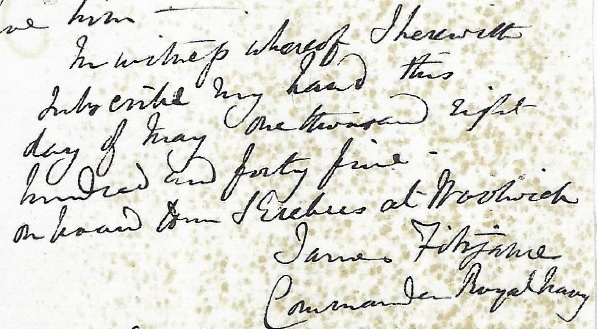 ve him
In witness whereof I herewith
subscribe my hand this
day of May one thousand eight
hundred and forty five -
on board HM S Erebus at Woolwich
James Fitzjames
Commander Royal Navy